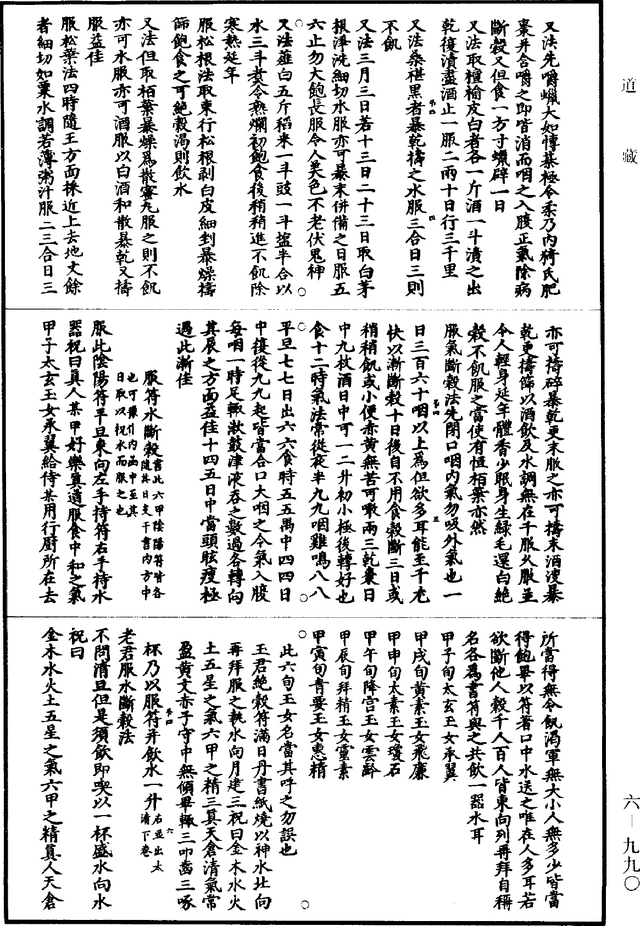 道藏
又法先嚼蠟大如博棊極令柔乃內猗氏肥
棗并合嚼之即皆消而咽之入腹正氣除病
斷穀又但食一方寸蠟辟一日
又法取檀榆皮白者各一斤酒一斗漬之出
乾復漬盡酒止一服二兩十日行三千里
又法桑椹黑者暴乾擣之水服三合日三則
不飢
又法三月三日若十三日二十三日取白茅
根淨洗細切水服亦可暴末併備之日服五
六止勿大飽長服令人美色不老伏鬼神
又法薤白五斤稻米一斗豉一斗鹽半合以
水三斗煑令熟爛初飽食後稍稍進不飢除
寒熱延年
服松根法取東行松根剝白皮細剉暴燥擣
篩飽食之可絶穀渴則飲水
又法但取栢葉暴燥爲散蜜丸服之則不飢
亦可水服亦可酒服以白酒和散暴乾又擣
服益佳
服松葉法四時隨王方面採近上去地丈餘
者細切如粟水調若薄粥汁服二三合日三
亦可擣碎暴乾更末服之亦可擣末酒浸暴
乾更擣篩以酒飲及水調無在千服以服至
令人輕身延年體香少眠身生緑毛還白絶
穀不飢服之當使有恒栢葉亦然
服氣斷穀法先閉口咽內氣勿吸外氣也一
日三百六十咽以上爲但欲多耳能至千尤
快以漸斷穀十日後自不用食穀斷三日或
稍稍飢或小便赤黄無苦可噉兩三乾棗日
中九枚酒日中可一二升初小極後轉好也
食十二時氣法常從夜半九九咽雞鳴八八
平旦七七日出六六食時五五禺中四四日
中復從九九起皆當合口大咽之令氣入腹
每咽一時足輒漱鼓津液吞之數過各轉向
其辰之方面益佳十四五日中當頭眩瘦極
過此漸佳
服符水斷穀書此六甲陰陽符皆各隨其日支干書內方中也可豫作內函中至其日取以祝水而服之也
服此陰陽符平旦東向左手持符右手持水
器祝曰真人某甲好樂真道服食中和之氣
甲子太玄玉女承翼給侍某用行廚所在去
所當得無令飢渴軍無大小人無多少皆當
得飽畢以符著口中水送之唯在人多耳若
欲斷他人穀千人百人皆東向列再拜自稱
名各爲書符與之共飲一器水耳
甲子旬太玄玉女承翼
甲戌旬黄素玉女飛廉
甲申旬太素玉女瓊石
甲午旬降宫玉女雲齡
甲辰旬拜精玉女靈素
甲寅旬青要玉女惠精
此六旬玉女名當其呼之勿誤也
王君絶穀符滿日丹書紙燒以神水北向
再拜服之執水向月建三祝曰金木水火
土五星之氣六甲之精三真天倉清氣常
盈黄文赤子守中無傾畢輒三叩齒三啄
杯乃以服符并飲水一升右並出太清下卷
老君服水斷穀法
不問清旦但是須飲即喫以一杯盛水向水
祝曰
金木水火土五星之氣六甲之精真人天倉
六—九九〇